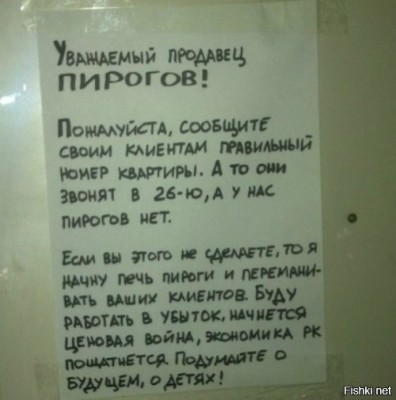 Уважаемый продавец
пирогов!
Пожалуйста, сообщите
своим клиентам правильный
номер квартиры. А то они
звонят в 26-ю, а у нас
пирогов нет.
Если вы этого не сделаете, то я
начну печь пироги и перемани-
вать ваших клиентов. Буду
работать в убыток, начнется
ценовая война, экономика РК
пошатнется. Подумайте о
будущем, о детях!
Fishki.net